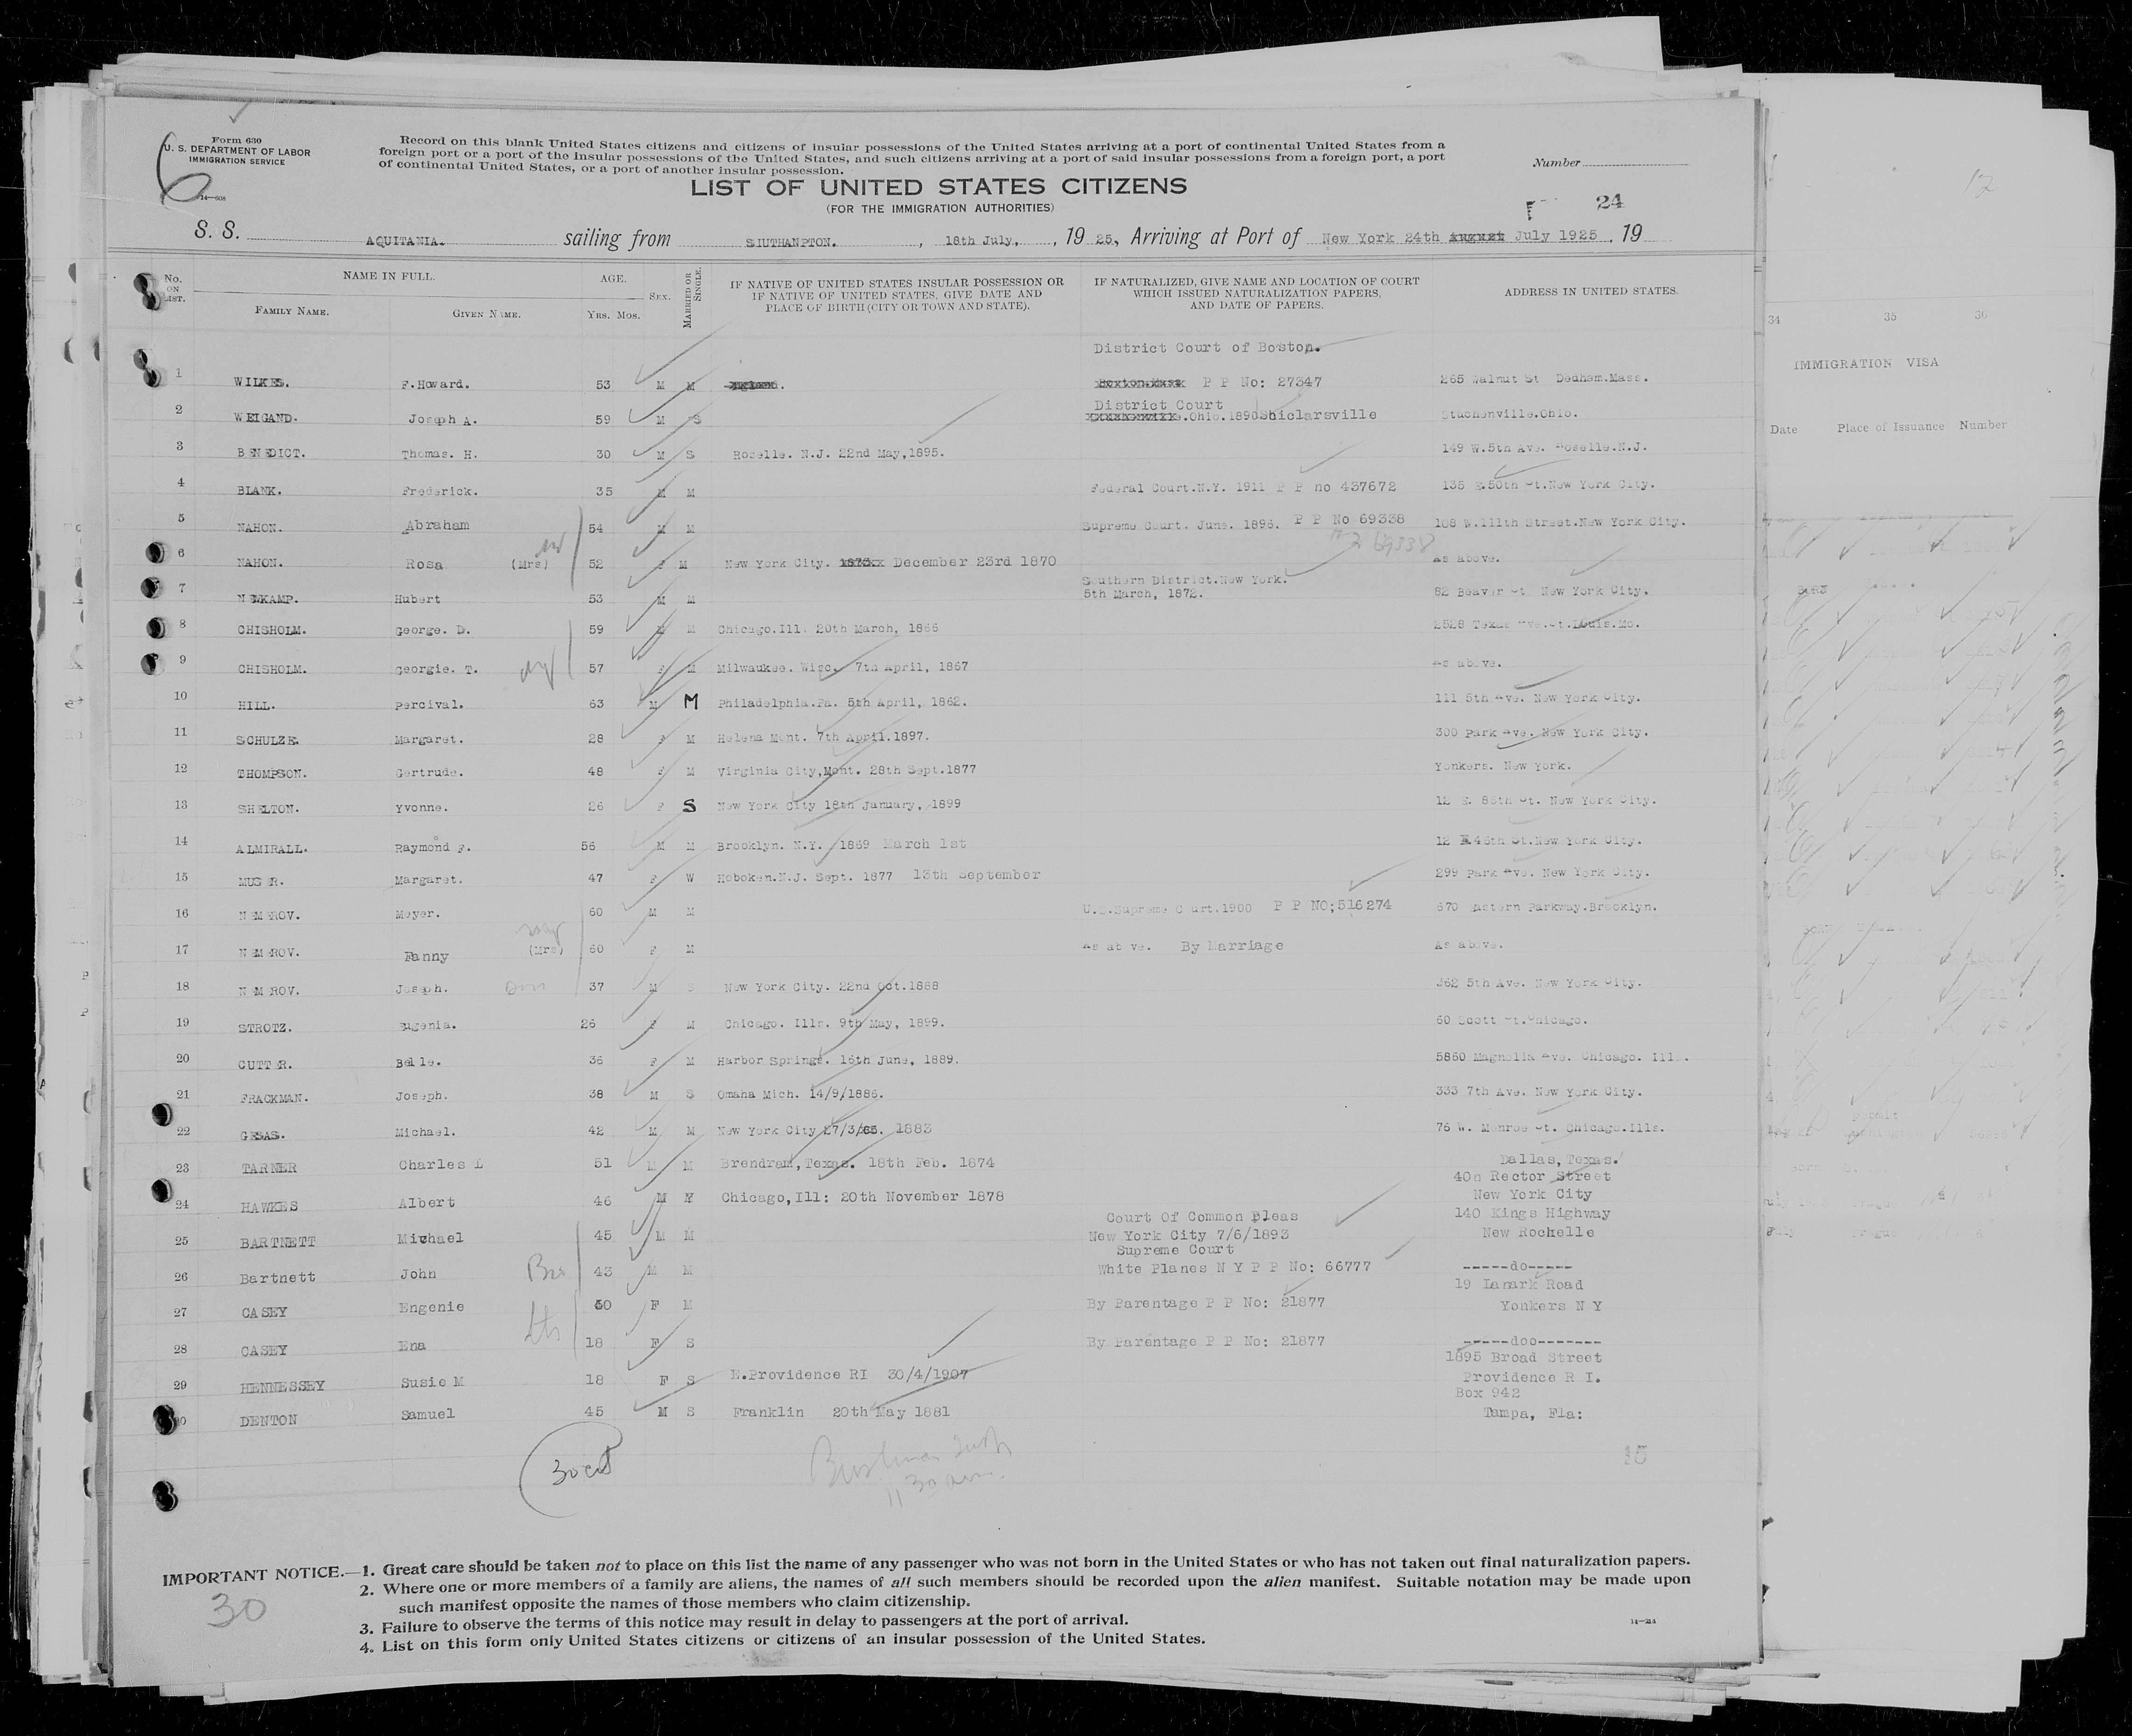 Form 630
U. S. DEPARTMENT OF LABOR
IMMIGRATION SERVICE
14—608
6
Record on this blank United States citizens and citizens of insular possessions of the United States arriving at a port of continental United States from a
foreign port or a port of the insular possessions of the United States, and such citizens arriving at a port of said insular possessions from a foreign port, a port
of continental United States, or a port of another insular possession.
Number
LIST OF UNITED STATES CITIZENS
(FOR THE IMMIGRATION AUTHORITIES)
24
S. S. AQUITANIA. sailing from SIUTHANPTON. , 18th July, , 19 25, Arriving at Port of New York 24th July 1925 , 19
No. ON LIST. NAME IN FULL. FAMILY NAME. GIVEN NAME. AGE. YRS. MOS. SEX. MARRIED OR SINGLE. IF NATIVE OF UNITED STATES INSULAR POSSESSION OR IF NATIVE OF UNITED STATES, GIVE DATE AND PLACE OF BIRTH (CITY OR TOWN AND STATE). IF NATURALIZED, GIVE NAME AND LOCATION OF COURT WHICH ISSUED NATURALIZATION PAPERS, AND DATE OF PAPERS. ADDRESS IN UNITED STATES.
District Court of Boston.
1 WILKES. F.Howard. 53 M M P P No: 27347 265 Walnut St Dedham.Mass.
District Court
2 WEIGAND. Joseph A. 59 M S .Ohio.1890Shiclarsville Stuchenville.Ohio.
3 BENEDICT. Thomas. H. 30 M S Roselle. N.J. 22nd May,1895. 149 W.5th Ave. Roselle.N.J.
4 BLANK. Frederick. 35 M M Federal Court.N.Y. 1911 P P no 437672 135 E.50th St.New York City.
5 NAHON. Abraham 54 M M Supreme Court. June. 1896. P P No 69338 108 W.111th Street.New York City.
69338
6 NAHON. Rosa (Mrs) 52 F M New York City. December 23rd 1870 As above.
Southern District.New York.
7 NEWKAMP. Hubert 53 M M 5th March, 1872. 82 Beaver St New York City.
8 CHISHOLM. George. D. 59 M M Chicago.Ill. 20th March, 1866 2528 Texas Ave.St.Louis.Mo.
9 CHISHOLM. Georgie. T. 57 F M Milwaukee. Wisc. 7th April, 1867 As above.
10 HILL. Percival. 63 M M Philadelphia.Pa. 5th April, 1862. 111 5th Ave. New York City.
11 SCHULZE. Margaret. 28 F M Helena Mont. 7th April.1897. 300 Park Ave. New York City.
12 THOMPSON. Gertrude. 48 F M Virginia City,Mont. 28th Sept.1877 Yonkers. New York.
13 SHELTON. Yvonne. 26 F S New York City 18th January, 1899 12 E. 86th St. New York City.
14 ALMIRALL. Raymond F. 56 M M Brooklyn. N.Y. 1869 March 1st 12 E.46th St.New York City.
15 MUSER. Margaret. 47 F W Hoboken.N.J. Sept. 1877 13th September 299 Park Ave. New York City.
16 NEMEROV. Meyer. 60 M M U.S.Supreme Court.1900 P P NO;516274 670 Eastern Parkway.Brooklyn.
17 NEMEROV. Fanny (Mrs) 60 F M As above. By Marriage As above.
18 NEMEROV. Joseph. 37 M S New York City. 22nd Oct.1888 362 5th Ave. New York City.
19 STROTZ. Eugenia. 26 F M Chicago. Ills. 9th May, 1899. 60 Scott St.Chicago.
20 CUTTER. Belle. 36 F M Harbor Springs. 16th June, 1889. 5860 Magnolia Ave. Chicago. Ills.
21 FRACKMAN. Joseph. 38 M S Omaha Mich. 14/9/1886. 333 7th Ave. New York City.
22 GESAS. Michael. 42 M M New York City 27/3/85. 1883 76 W. Monroe St. Chicago.Ills.
23 TARNER Charles L 51 M M Brendram,Texas. 18th Feb. 1874 Dallas,Texas.
40n Rector Street
24 HAWKES Albert 46 M M Chicago,Ill: 20th November 1878 New York City
Court Of Common Pleas 140 Kings Highway
25 BARTNETT Michael 45 M M New York City 7/6/1893 New Rochelle
Supreme Court
26 Bartnett John Bro 43 M M White Planes N Y P P No: 66777 -----do-----
19 Lanark Road
27 CASEY Engenie 50 F M By Parentage P P No: 21877 Yonkers N Y
28 CASEY Ena 18 F S By Parentage P P No: 21877 -----doo-------
1895 Broad Street
29 HENNESSEY Susie M 18 F S E.Providence RI 30/4/1907 Providence R I.
Box 942
30 DENTON Samuel 45 M S Franklin 20th May 1881 Tampa, Fla:
15
30 cit
11 30 am
IMPORTANT NOTICE.—1. Great care should be taken not to place on this list the name of any passenger who was not born in the United States or who has not taken out final naturalization papers.
2. Where one or more members of a family are aliens, the names of all such members should be recorded upon the alien manifest. Suitable notation may be made upon
such manifest opposite the names of those members who claim citizenship.
3. Failure to observe the terms of this notice may result in delay to passengers at the port of arrival.
4. List on this form only United States citizens or citizens of an insular possession of the United States.
30
14—214
12
34 35 36
IMMIGRATION VISA
Date Place of Issuance Number